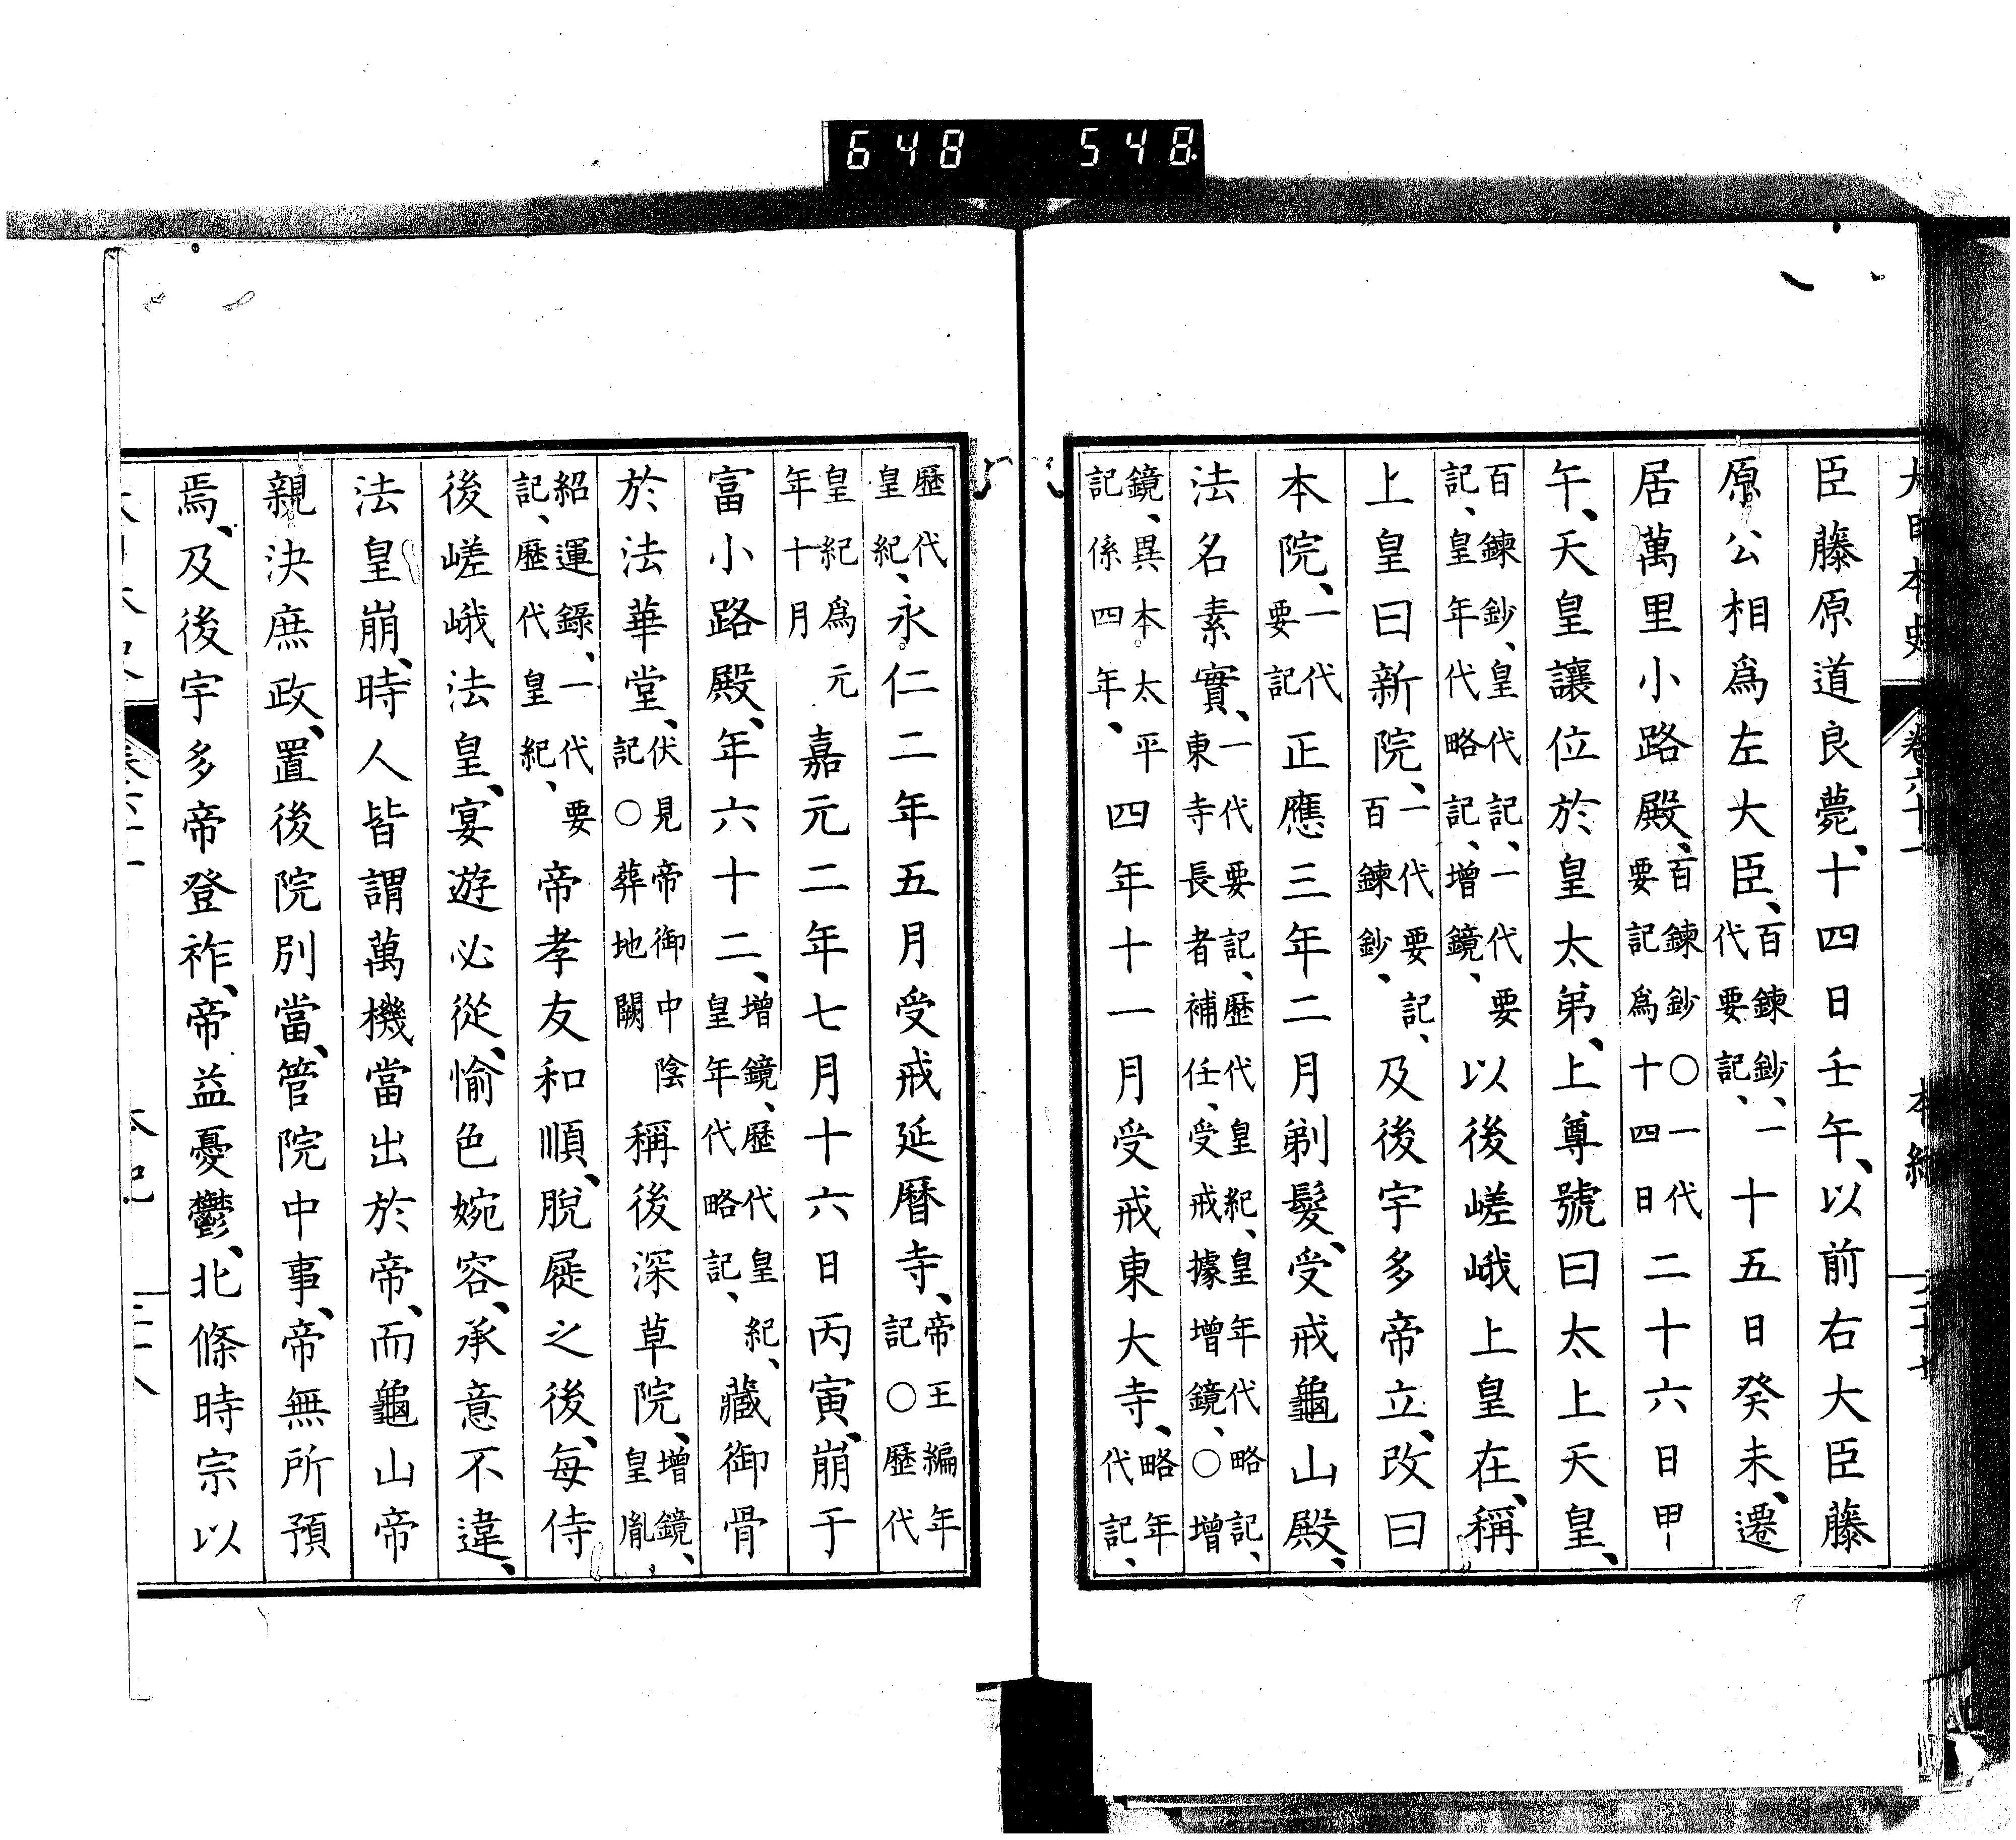 648 548.
大日本史 卷六十一 本紀 三十七
臣藤原道良薨、十四日壬午、以前右大臣藤
原公相爲左大臣、百鍊鈔、一代要記、十五日癸未、遷
居萬里小路殿、百鍊鈔○一代要記爲十四日二十六日甲
午、天皇讓位於皇太弟、上尊號曰太上天皇、
百鍊鈔、皇代記、一代要記、皇年代略記、增鏡、以後嵯峨上皇在、稱
上皇曰新院、一代要記、百鍊鈔、及後宇多帝立、改曰
本院、一代要記正應三年二月剃髮、受戒龜山殿、
法名素實、一代要記、歷代皇紀、皇年代略記、東寺長者補任、受戒據增鏡、○增
鏡、異本太平記係四年、四年十一月受戒東大寺、略年代記、
歷代皇紀、永仁二年五月受戒延曆寺、帝王編年記○歷代
皇紀爲元年十月嘉元二年七月十六日丙寅、崩于
富小路殿、年六十二、增鏡、歷代皇紀、皇年代略記、藏御骨
於法華堂、伏見帝御中陰記○葬地闕稱後深草院、增鏡、皇胤
紹運錄、一代要記、歷代皇紀、帝孝友和順、脫屣之後、每侍
後嵯峨法皇、宴遊必從、愉色婉容、承意不違、
法皇崩、時人皆謂萬機當出於帝、而龜山帝
親決庶政、置後院別當、管院中事、帝無所預
焉、及後宇多帝登祚、帝益憂鬱、北條時宗以
大日本史 卷六十一 本紀 三十八